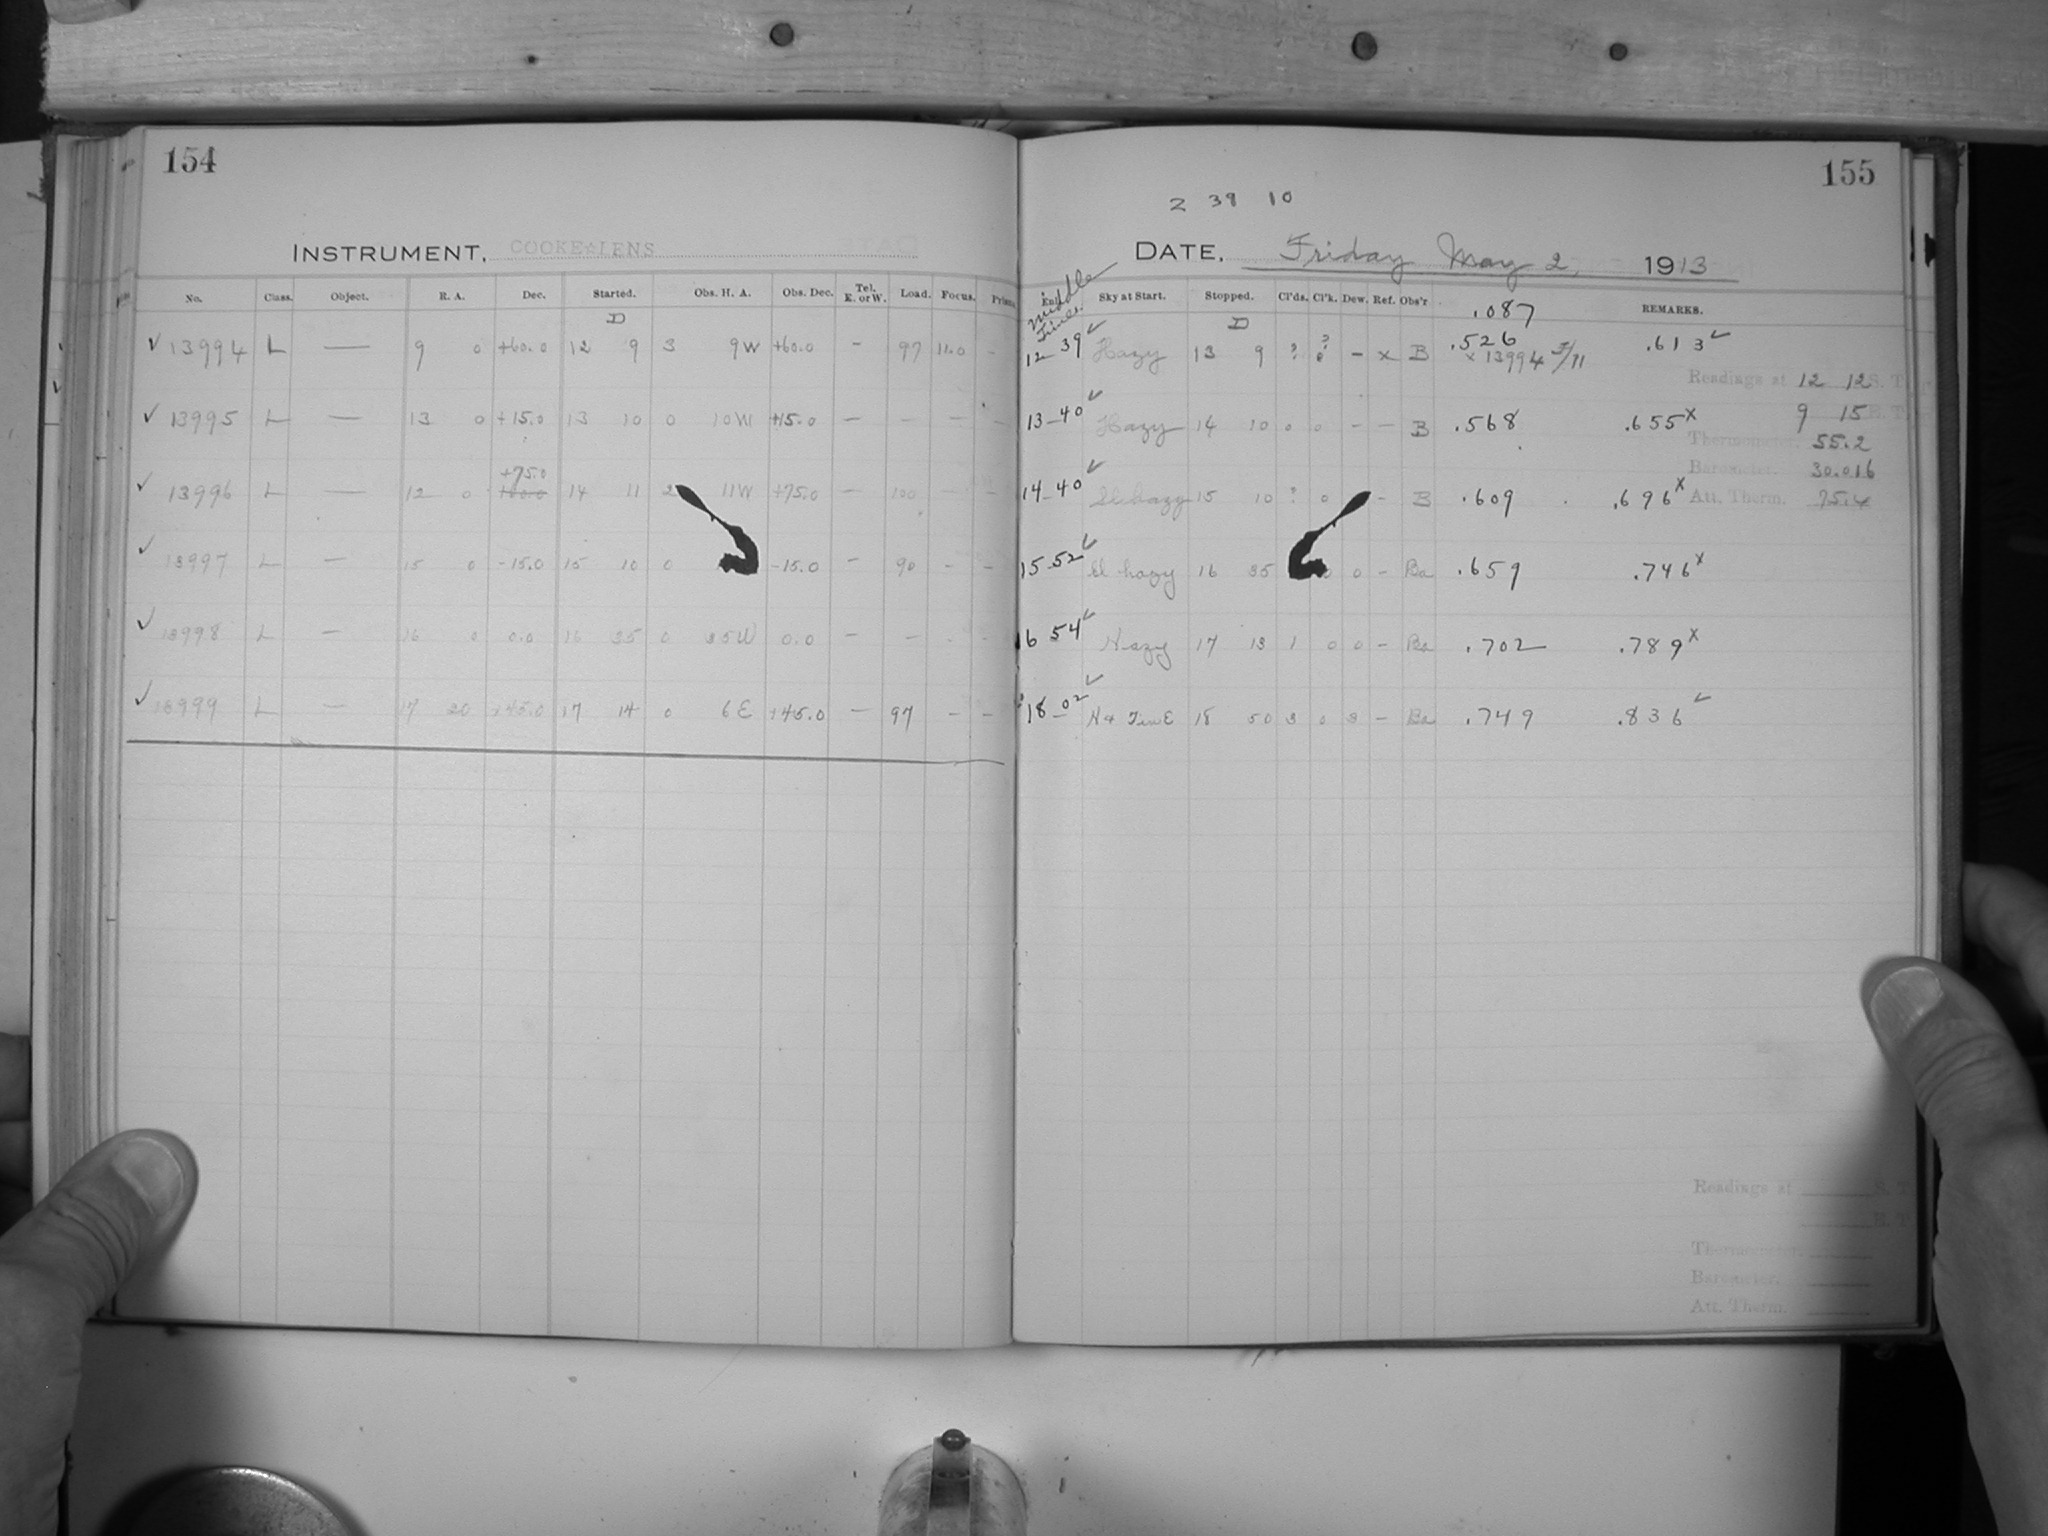 154
INSTRUMENT, COOKE LENS
No. Class. Object. R. A. Dec. Started. Obs. H. A. Obs. Dec. Tel. E. or W. Load. Focus.
D
✓ 13994 L — 9 0 +60.0 12 9 3 9W +60.0 - 97 11.0 -
✓ 13995 L — 13 0 +15.0 13 10 0 10W +15.0 — — — —
+75.0
✓ 13996 L — 12 0 +60.0 14 11 2 11W +75.0 — 100 — —
✓ 13997 L — 15 0 -15.0 15 10 0 -15.0 — 90 - -
✓ 13998 L — 16 0 0.0 16 35 0 35W 0.0 — — - -
✓ 13999 L — 17 20 +45.0 17 14 0 6E +45.0 — 97 — —
155
2 39 10
DATE, Friday May 2, 1913
Middle Times
Sky at Start. Stopped. Cl'ds. Cl'k. Dew. Ref. Obs'r REMARKS.
.087
D
12-39 ✓ Hazy 13 9 ? ? - x B .526 .613 ✓
x 13994 3/11
Readings at 12 12 S. T.
9 15 E. T.
13-40 ✓ Hazy 14 10 0 0 - - B .568 .655 x
Thermometer. 55.2
Barometer. 30.016
14-40 ✓ Sl hazy 15 10 ? 0 - B .609 .696 x
Att. Therm. 75.4
15-52 ✓ Sl hazy 16 35 0 - Ba .659 .746 x
16 54 ✓ Hazy 17 13 1 0 0 - Ba .702 .789 x
18-02 ✓ 18 50 3 0 3 - Ba .749 .836 ✓
Readings at S. T.
E. T.
Thermometer.
Barometer.
Att. Therm.